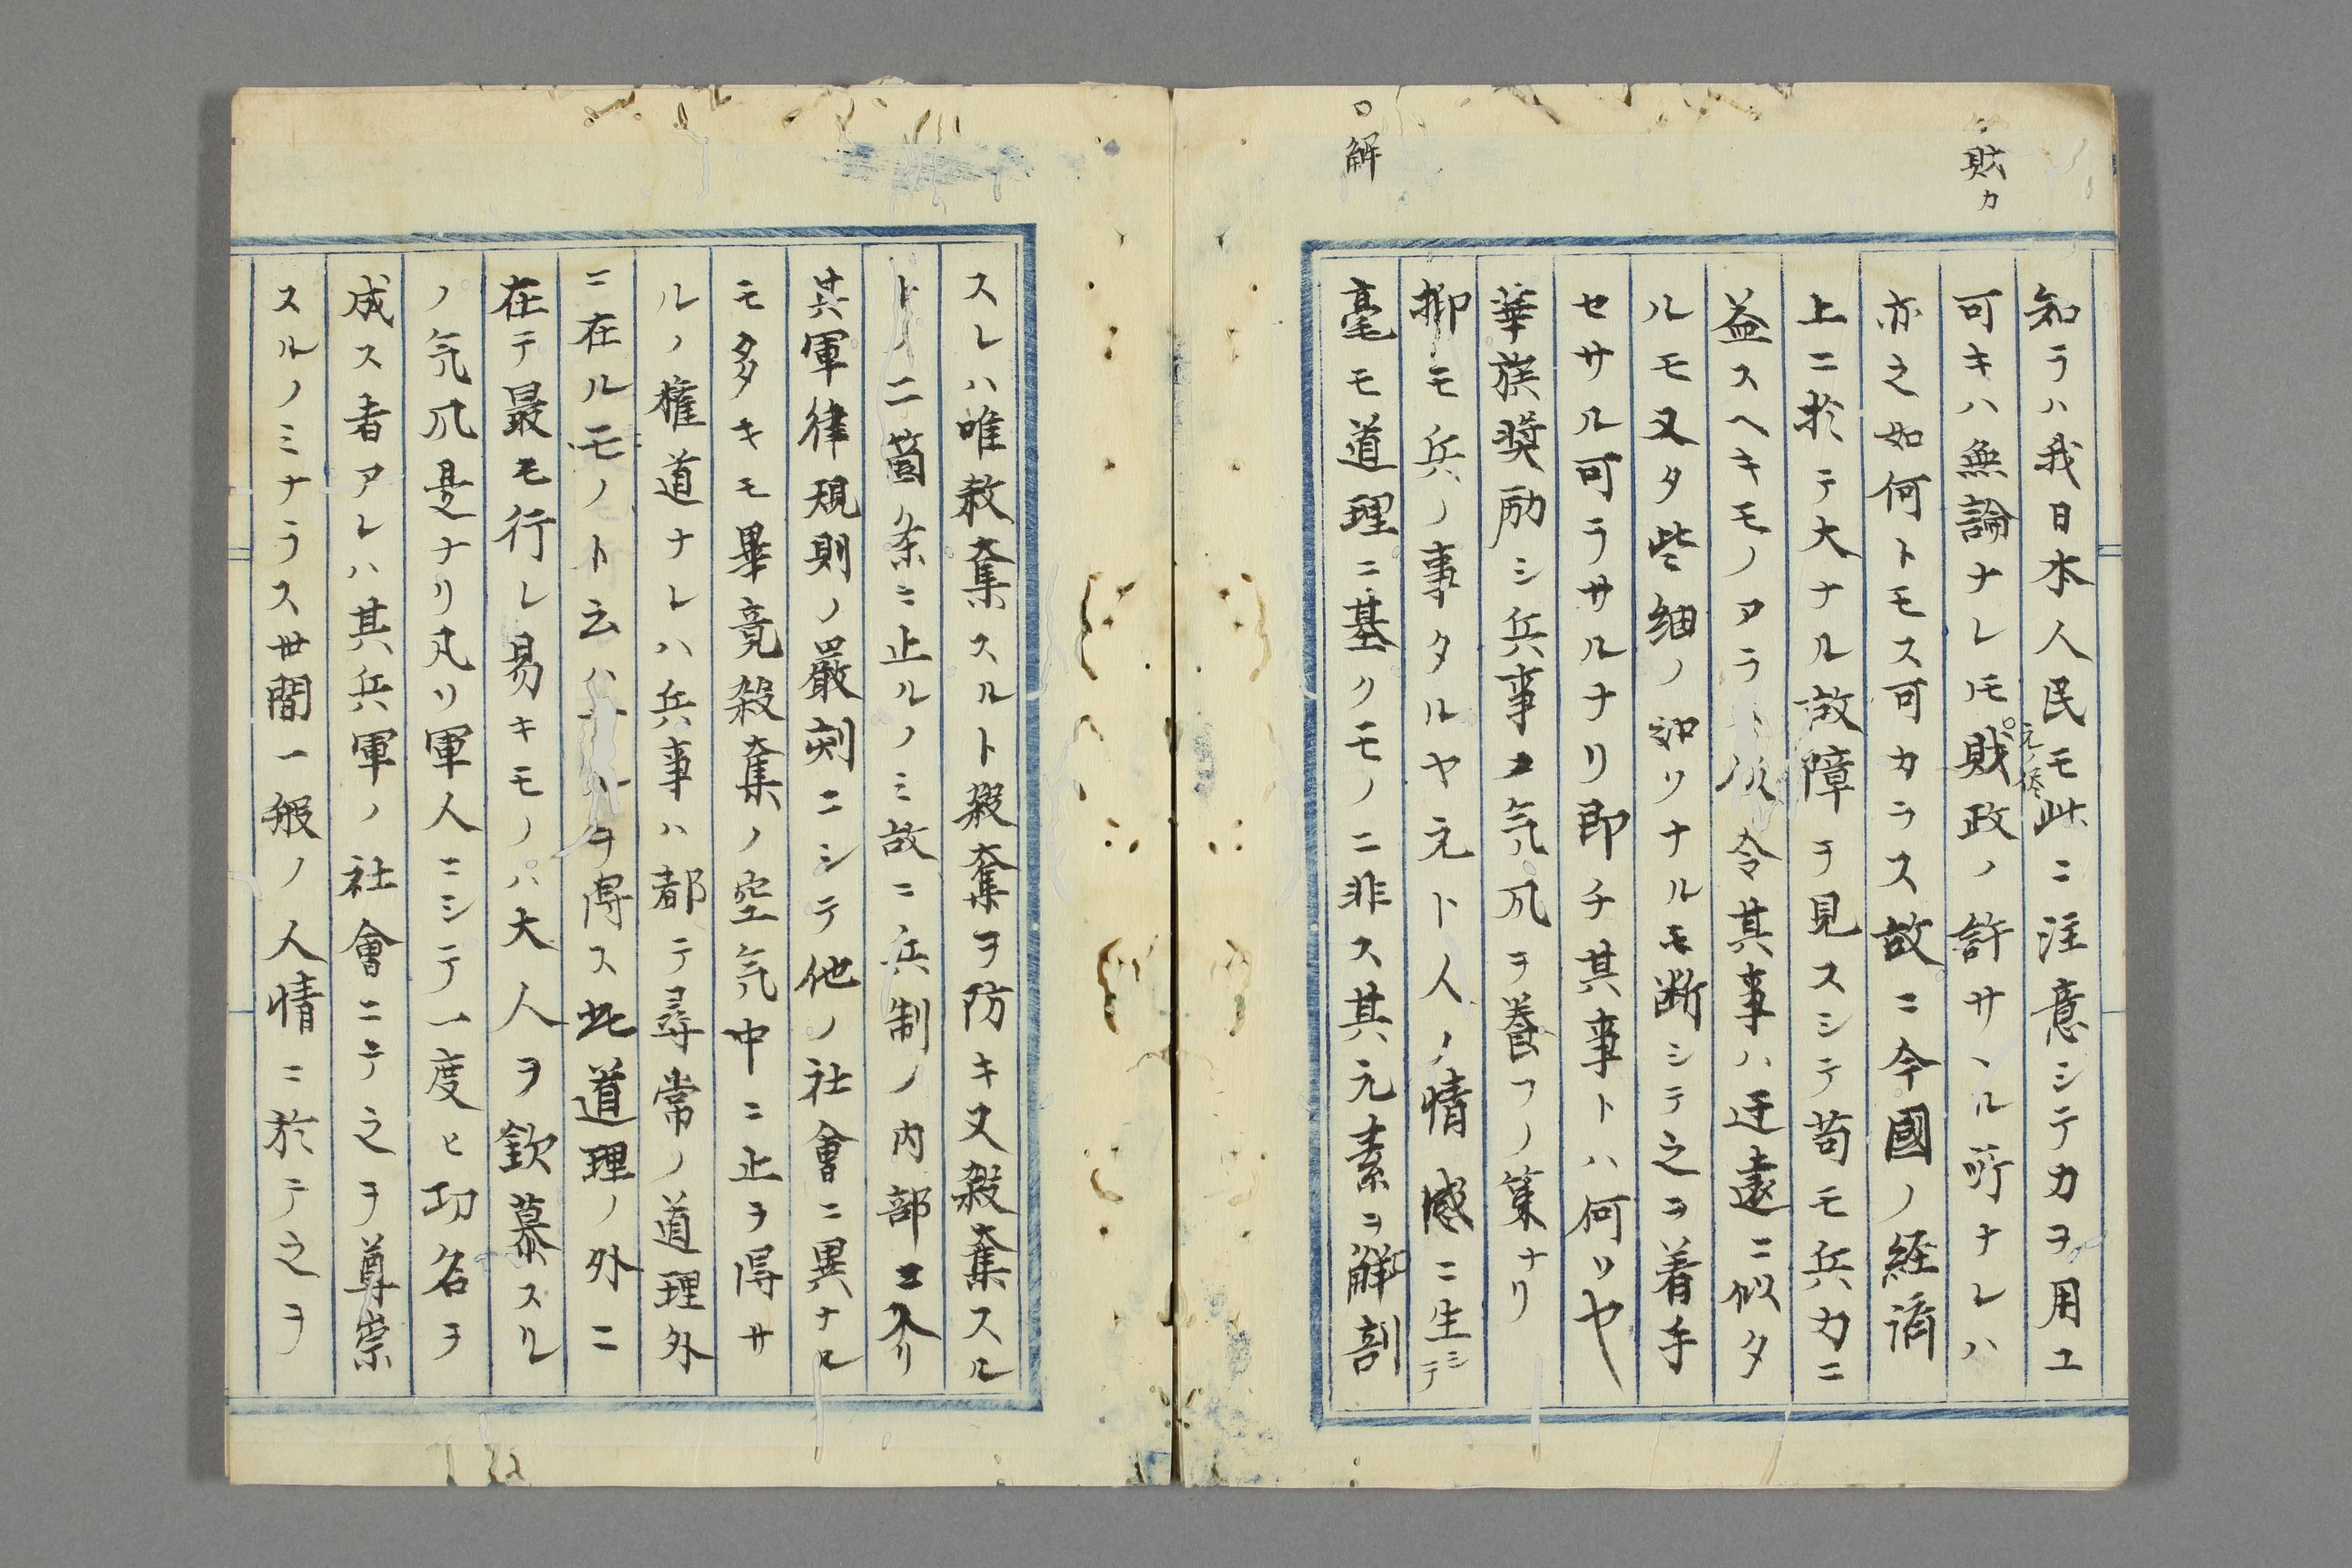 財カ
知ラハ我日本人民モ此ニ注意シテ力ヲ用ユ
可キハ無論ナレ𪜈財政ノ許サヽル所ナレハ
元ノ侭
亦之如何トモス可カラス故ニ今國ノ経済
上ニ於テ大ナル故障ヲ見スシテ苟モ兵力ニ
益スヘキモノアラ仮令其事ハ迂遠ニ似タ
ルモ又タ些細ノ如リナルモ断シテ之ヲ着手
セサル可ラサルナリ即チ其事トハ何ソヤ
華族奨励シ兵事ニ気風ヲ養フノ策ナリ
抑モ兵ノ事タルヤ元ト人ノ情感ニ生シテ
○解
毫モ道理ニ基クモノニ非ス其元素ヲ解剖
スレハ唯殺奪スルト殺奪ヲ防キ又殺奪スル
トノ二箇条ニ止ルノミ故ニ兵制ノ内部ニ入リ
其軍律規則ノ嚴刻ニシテ他ノ社會ニ異ナル
モ多キモ畢竟殺奪ノ空気中ニ止ヲ得サ
ルノ権道ナレハ兵事ハ都テ尋常ノ道理外
ニ在ルモノト云ハヲ得ス此道理ノ外ニ
在テ最モ行レ易キモノハ大人ヲ欽慕スル
ノ気風是ナリ凡ソ軍人ニシテ一度ヒ功名ヲ
成ス者アレハ其兵軍ノ社會ニテ之ヲ尊崇
スルノミナラス世間一般ノ人情ニ於テ之ヲ